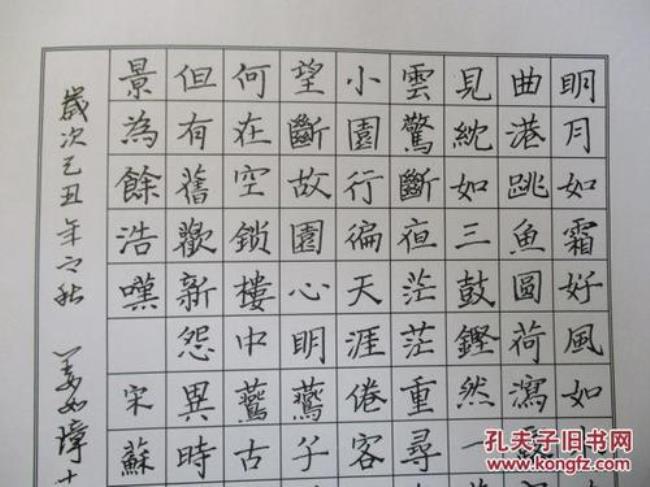 明月如霜好風如
曲港跳魚圓荷瀉
見紞如三鼓鏗然一
雲驚斷夜茫茫重尋
小園行徧天涯倦客
望斷故園心明鷰子
何在空鎖樓中鷰古
但有舊歡新怨異時
景為餘浩嘆 宋蘇
歲次己丑年之秋 姜如璋
孔夫子旧书网
www.kongfz.com